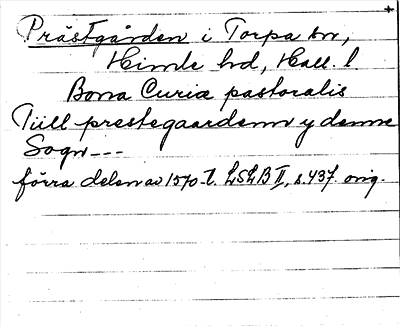 +
Prästgården i Torpa sn,
Himle hd, Hall. l.
Bona Curiæ pastoralis
Tiill prestegaardenn y denne
Sogn---
förra delen av 1570-t. LSLB II, s. 437. orig.